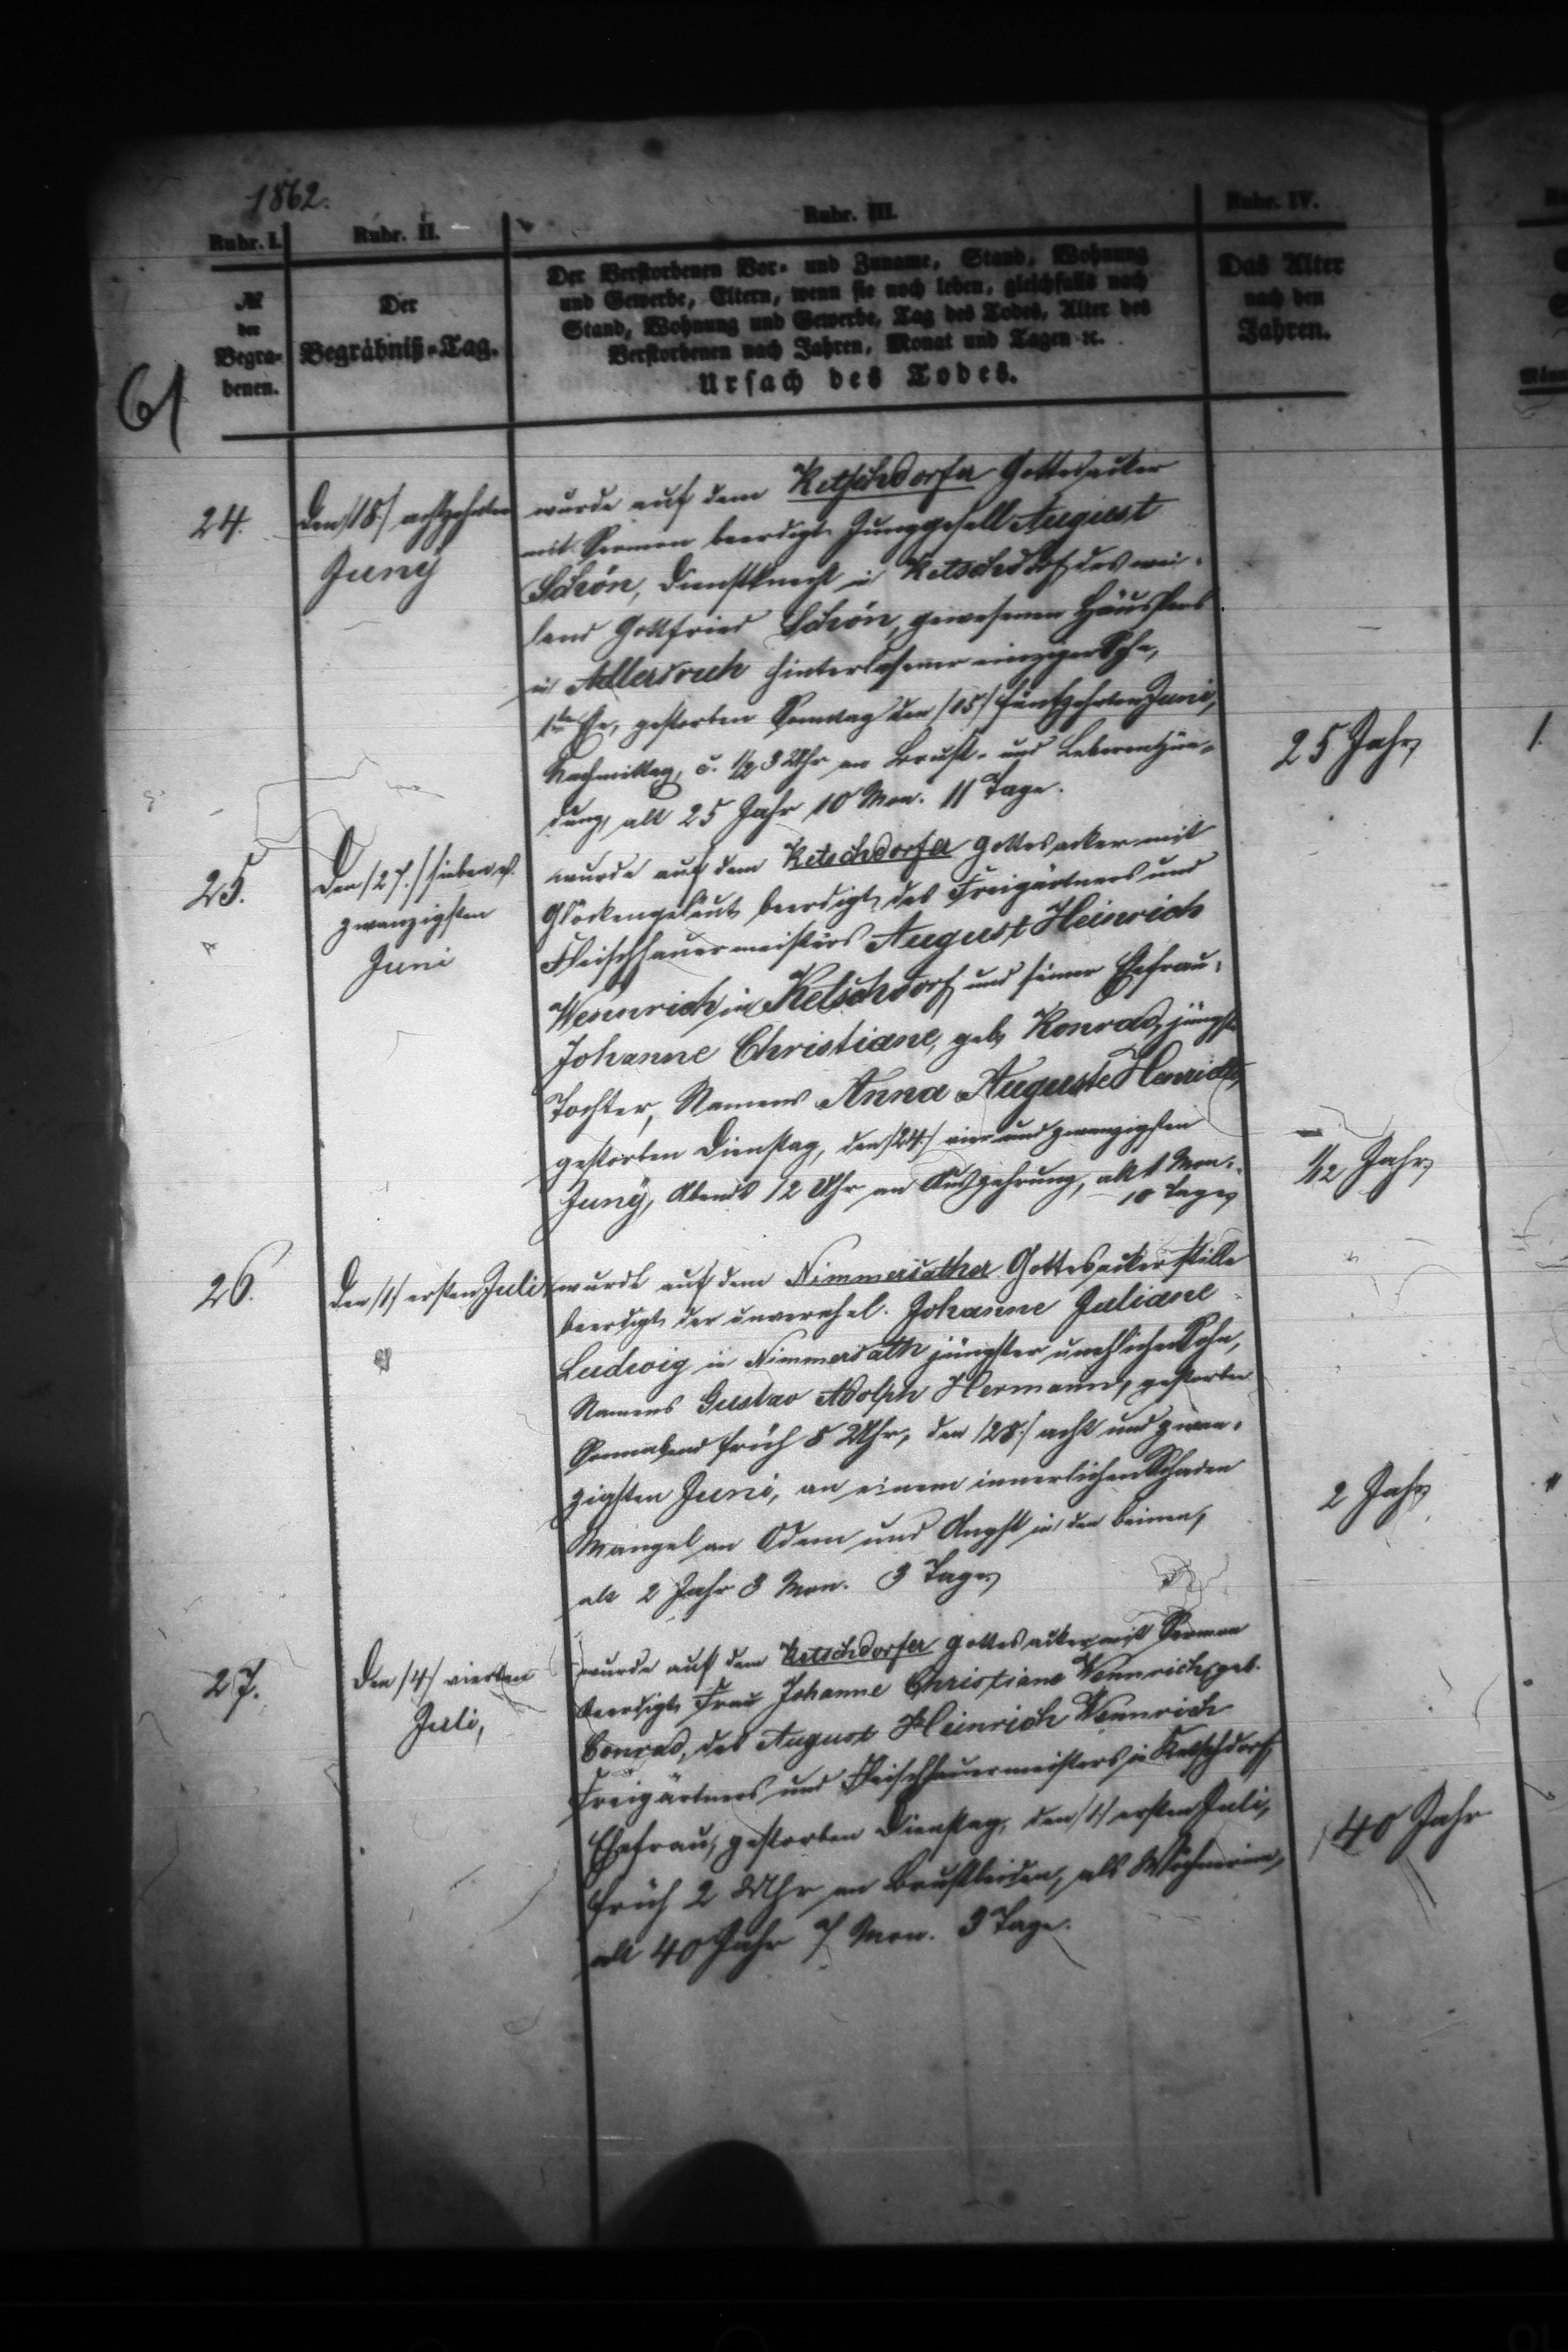 1862.
Rubr. I.
Rubr. II.
Rubr. III.
Rubr. IV.
61
№
der
Begra-
benen.
Der
Begräbniß-Tag.
Der Verstorbenen Vor- und Zuname, Stand, Wohnung
und Gewerbe, Eltern, wenn sie noch leben, gleichfalls nach
Stand, Wohnung und Gewerbe, Tag des Todes, Alter des
Verstorbenen nach Jahren, Monat und Tagen ꝛc.
Ursach des Todes.
Das Alter
nach den
Jahren.
24.
Den /18./ achtzehnten
Juny
wurde auf dem Ketschdorfer Gottesacker
mit Sermon beerdigt Junggesell August
Schön, Dienstknecht in Ketschdorf des wei-
land Gottfried Schön, gewesenen Häuslers
in Adlersruh hinterlassener einziger Sohn,
1ter Ehe, gestorben Sonntag den /15/ fünfzehnten Juni,
Nachmittag, 1/2 3 Uhr an Brust- und Leberentzün-
dung, alt 25 Jahr 10 Mon. 11 Tage.
25 Jahr
1.
25.
Den /27./ sieben u.
zwanzigsten
Juni
wurde auf dem Ketschdorfer Gottesacker mit
Glockengeläut beerdigt, des Freigärtners und
Fleischhauermeisters August Heinrich
Wennrich in Ketschdorf und seiner Ehefrau,
Johanne Christiane, geb. Konrad, jüngste
Tochter, Namens Anna Auguste
gestorben Dienstag, den /24./ vier und zwanzigsten
Juny, Abends 12 Uhr an Auszehrung, alt 1 Mon.
10 Tage
1/12 Jahr
26.
Den /1/ ersten Juli
wurde auf dem Nimmersather Gottesacker stille
beerdigt der unverehel. Johanne Juliane
Ludwig in Nimmersath jüngster unehlicher Sohn,
Namens Gustav Adolph Hermann, gestorben
Sonnabend früh 8 Uhr, den /28./ acht und zwan-
zigsten Juni, an einem innerlichen Schaden
Mangel an Odem und Angst in den Beinen,
alt 2 Jahr 3 Mon. 3 Tage
2 Jahr
27.
Den /4/ vierten
Juli,
wurde auf dem Ketschdorfer Gottesacker mit Sermon
beerdigt Frau Johanne Christiane Wennrich, geb.
Conrad, des August Heinrich Wennrich
Freigärtners und Fleischhauermeisters in Ketschdorf
Ehefrau, gestorben Dienstag, den /1/ ersten Juli,
früh 2 Uhr an Brustleiden, als Wöchnerin,
alt 40 Jahr 7 Mon. 3 Tage.
40 Jahr